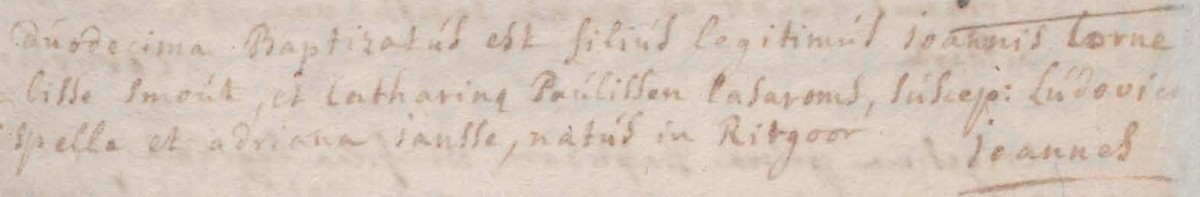 Duodecima Baptizatús est filiús legitimús ioannis Corne
lisse Smoút, et Catharinę Paúlissen Casaroms, súscep: Lúdovic
spelle et adriana iansse, natús in Ritgoor
ioannes